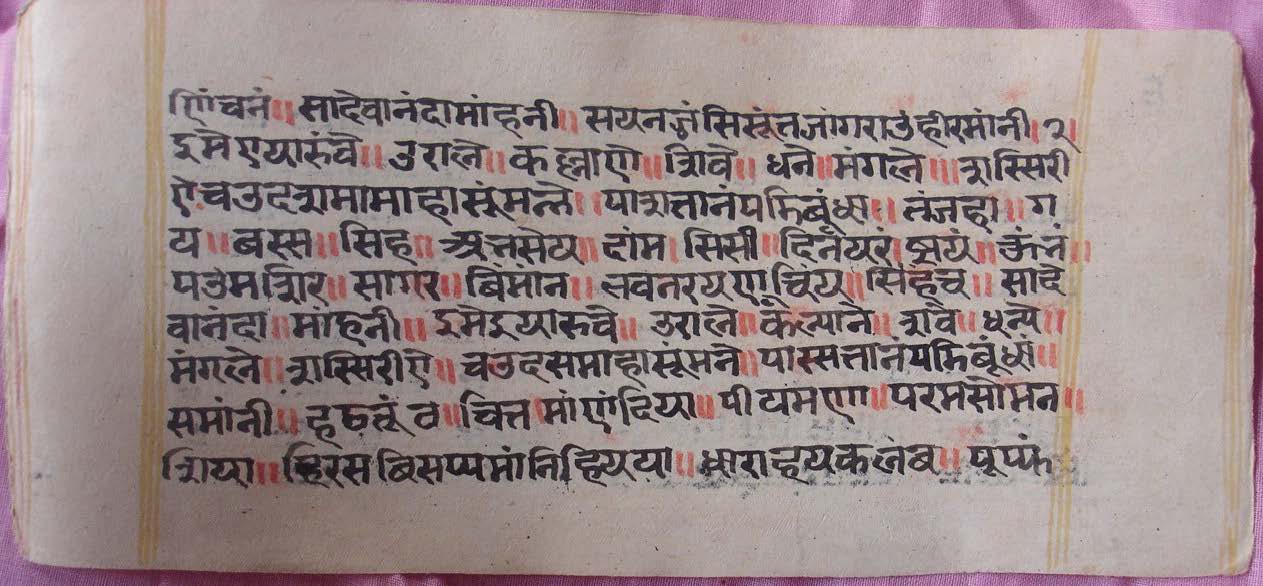 णिंचनं॥ सादेवानंदामांहनी॥ सयनज्ञंसिसूंतजांगराउंहीरमांनी।२।
इमेएयारुंवै॥ उराले॥ कल्लाणे॥ शिवे॥ धने॥ मंगले॥ शस्सिरी
ऐचउदशमामाहासूंमन्ते॥ पांशत्तानंपडिबूंधा॥ तंजहा॥ ग
य॥ बस्स॥ सिह॥ अत्तसेय॥ दांम। सिसी॥ दिनंयरं॥ झयं॥ कुंनं॥
पउमशिर॥ सागर॥ बिमांन॥ लवनरयण॥ सिहंच॥ सादे
वानंदा॥ मांहनी॥ इमेइयारुवै॥ उराले॥ कंल्याने॥ शवे॥ धन्ये॥
मंगले॥ शस्सिरीऐ॥ चउदसमाहासूंमने॥ पास्सत्तानंपडिबूंधा॥
समांनी॥ हठतूं व॥ चित्त॥ मांणंदिया॥ पीयमणा॥ परमसोमन॥
शिया॥ हिरसबिसप्पमांनिहियया॥ धाराहयकलंब॥ पूप्फं